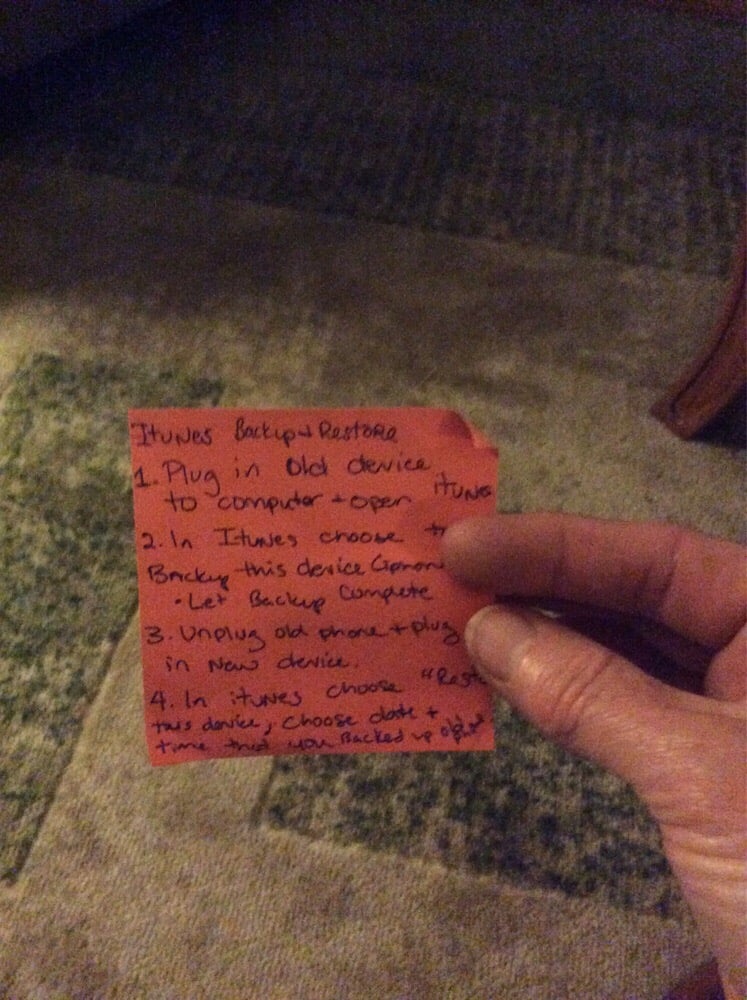 Itunes Backup + Restore
1. Plug in old device
to computer + open itunes
2. In Itunes choose
Backup this device
• Let Backup Complete
3. Unplug old phone + plug
in New device.
4. In itunes choose "Rest
this device, choose date +
time that you Backed up old